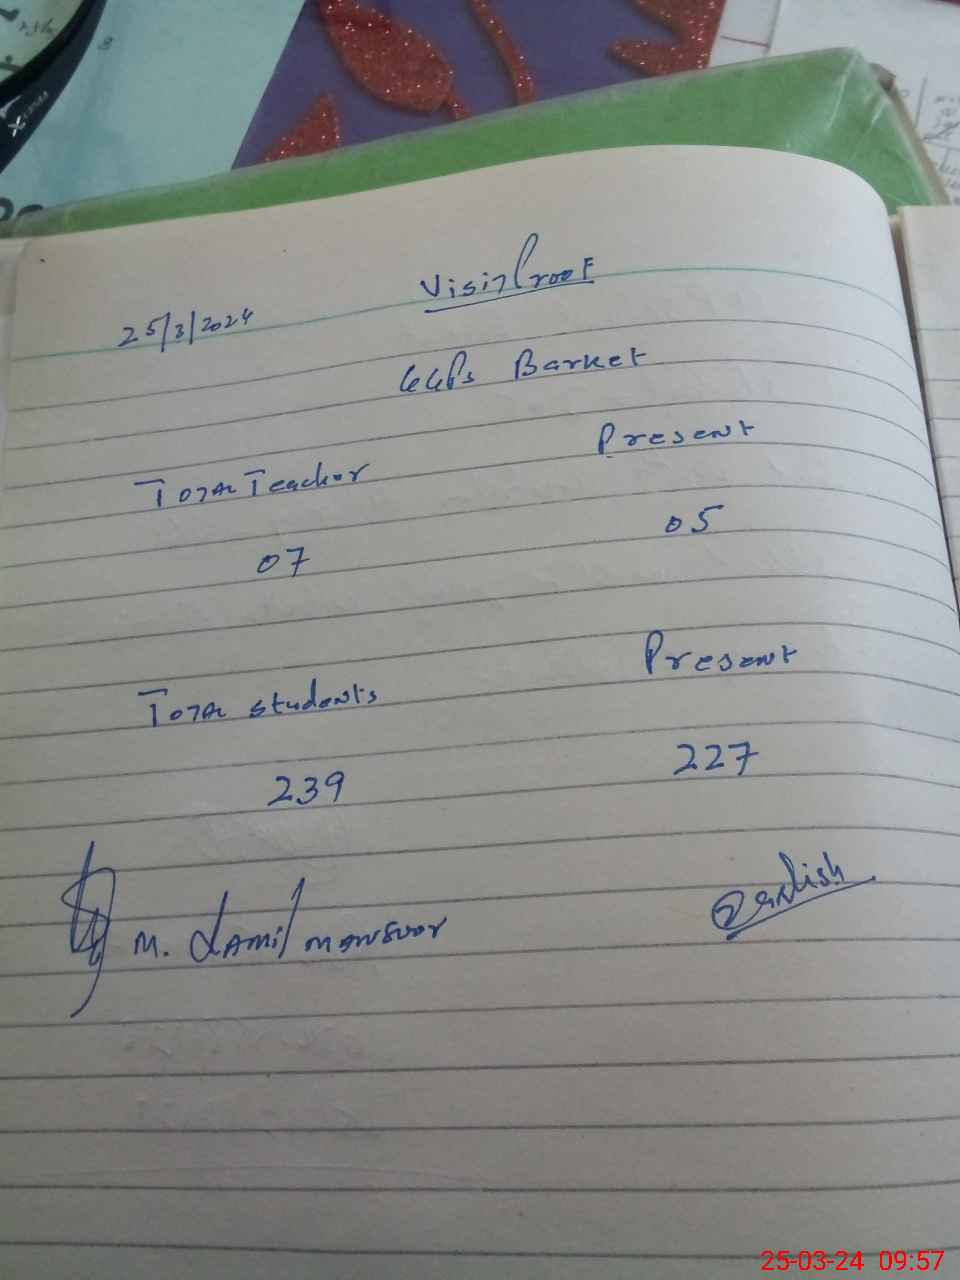 Visit Proof
25/3/2024
GGPS Barket
Total Teacher Present
07 05
Total students Present
239 227
M. Jamil Mansoor
25-03-24 09:57